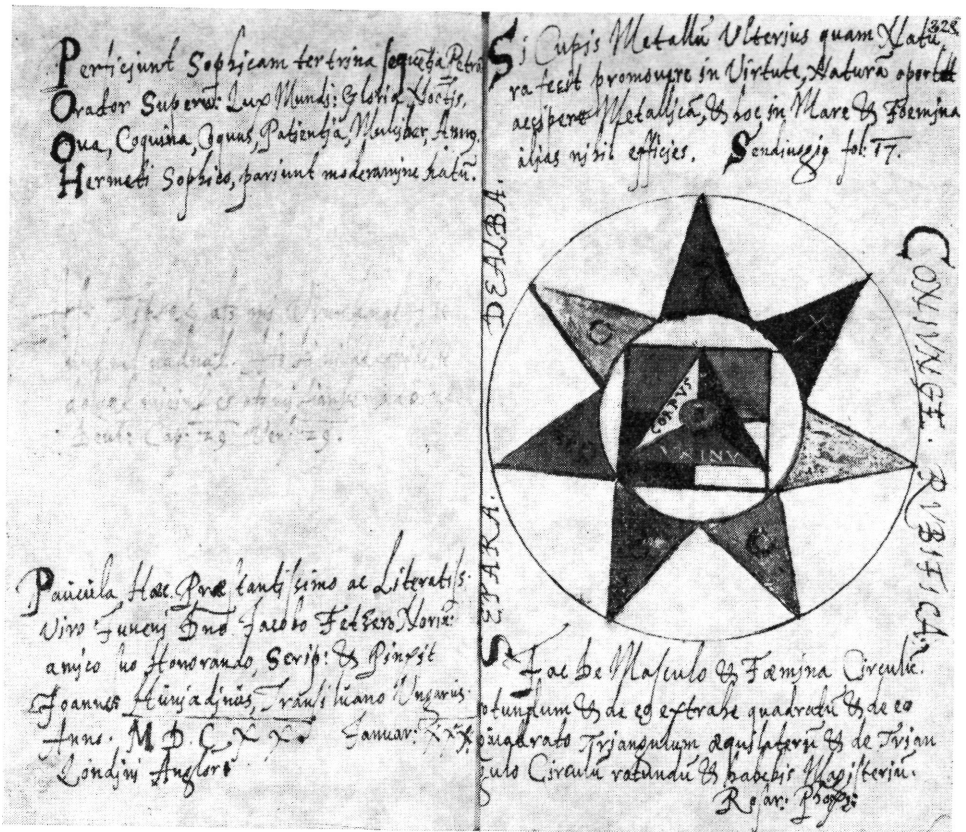 Perficiunt Sophicam ter trina sequētia Petrā
Orator Superūm: Lux Mundi: Gloria Noctis,
Ova, Coquina, Coquus, Patientia, Mulciber, Annꝰ.
Hermeti Sophico, pariunt moderamine natū.
Paucula Hæc Præstantissimo ac Literatiss.
Viro Juveni Dno. Jacobo Fetzero Norim:
amico suo Honorando, Scrip: & Pinxit
Joannes Hunjadinus, Transiluano Ungarus.
Anno. M. D. C. X X. Januar: XXX
Londini Anglorū
328
Si Cupis Metallū Ulterius quam Natu
ra fecit promovere in Virtute, Naturā oportet
accipere Metallicā, & hoc in Mare & Foemina
alias nihil efficies. Sendivogio fol: 17.
SEPARA. DEALBA.
CONIVNGE. RVBIFICA.
CORPVS
ANIMA
Fac de Masculo & Fæmina Circulū.
rotundum & de eo extrahe quadratū & de eo
quadrato Triangulum æquilaterū & de Trian
gulo Circulū rotundū & habebis Magisteriū.
Rosar: Phophꝫ: